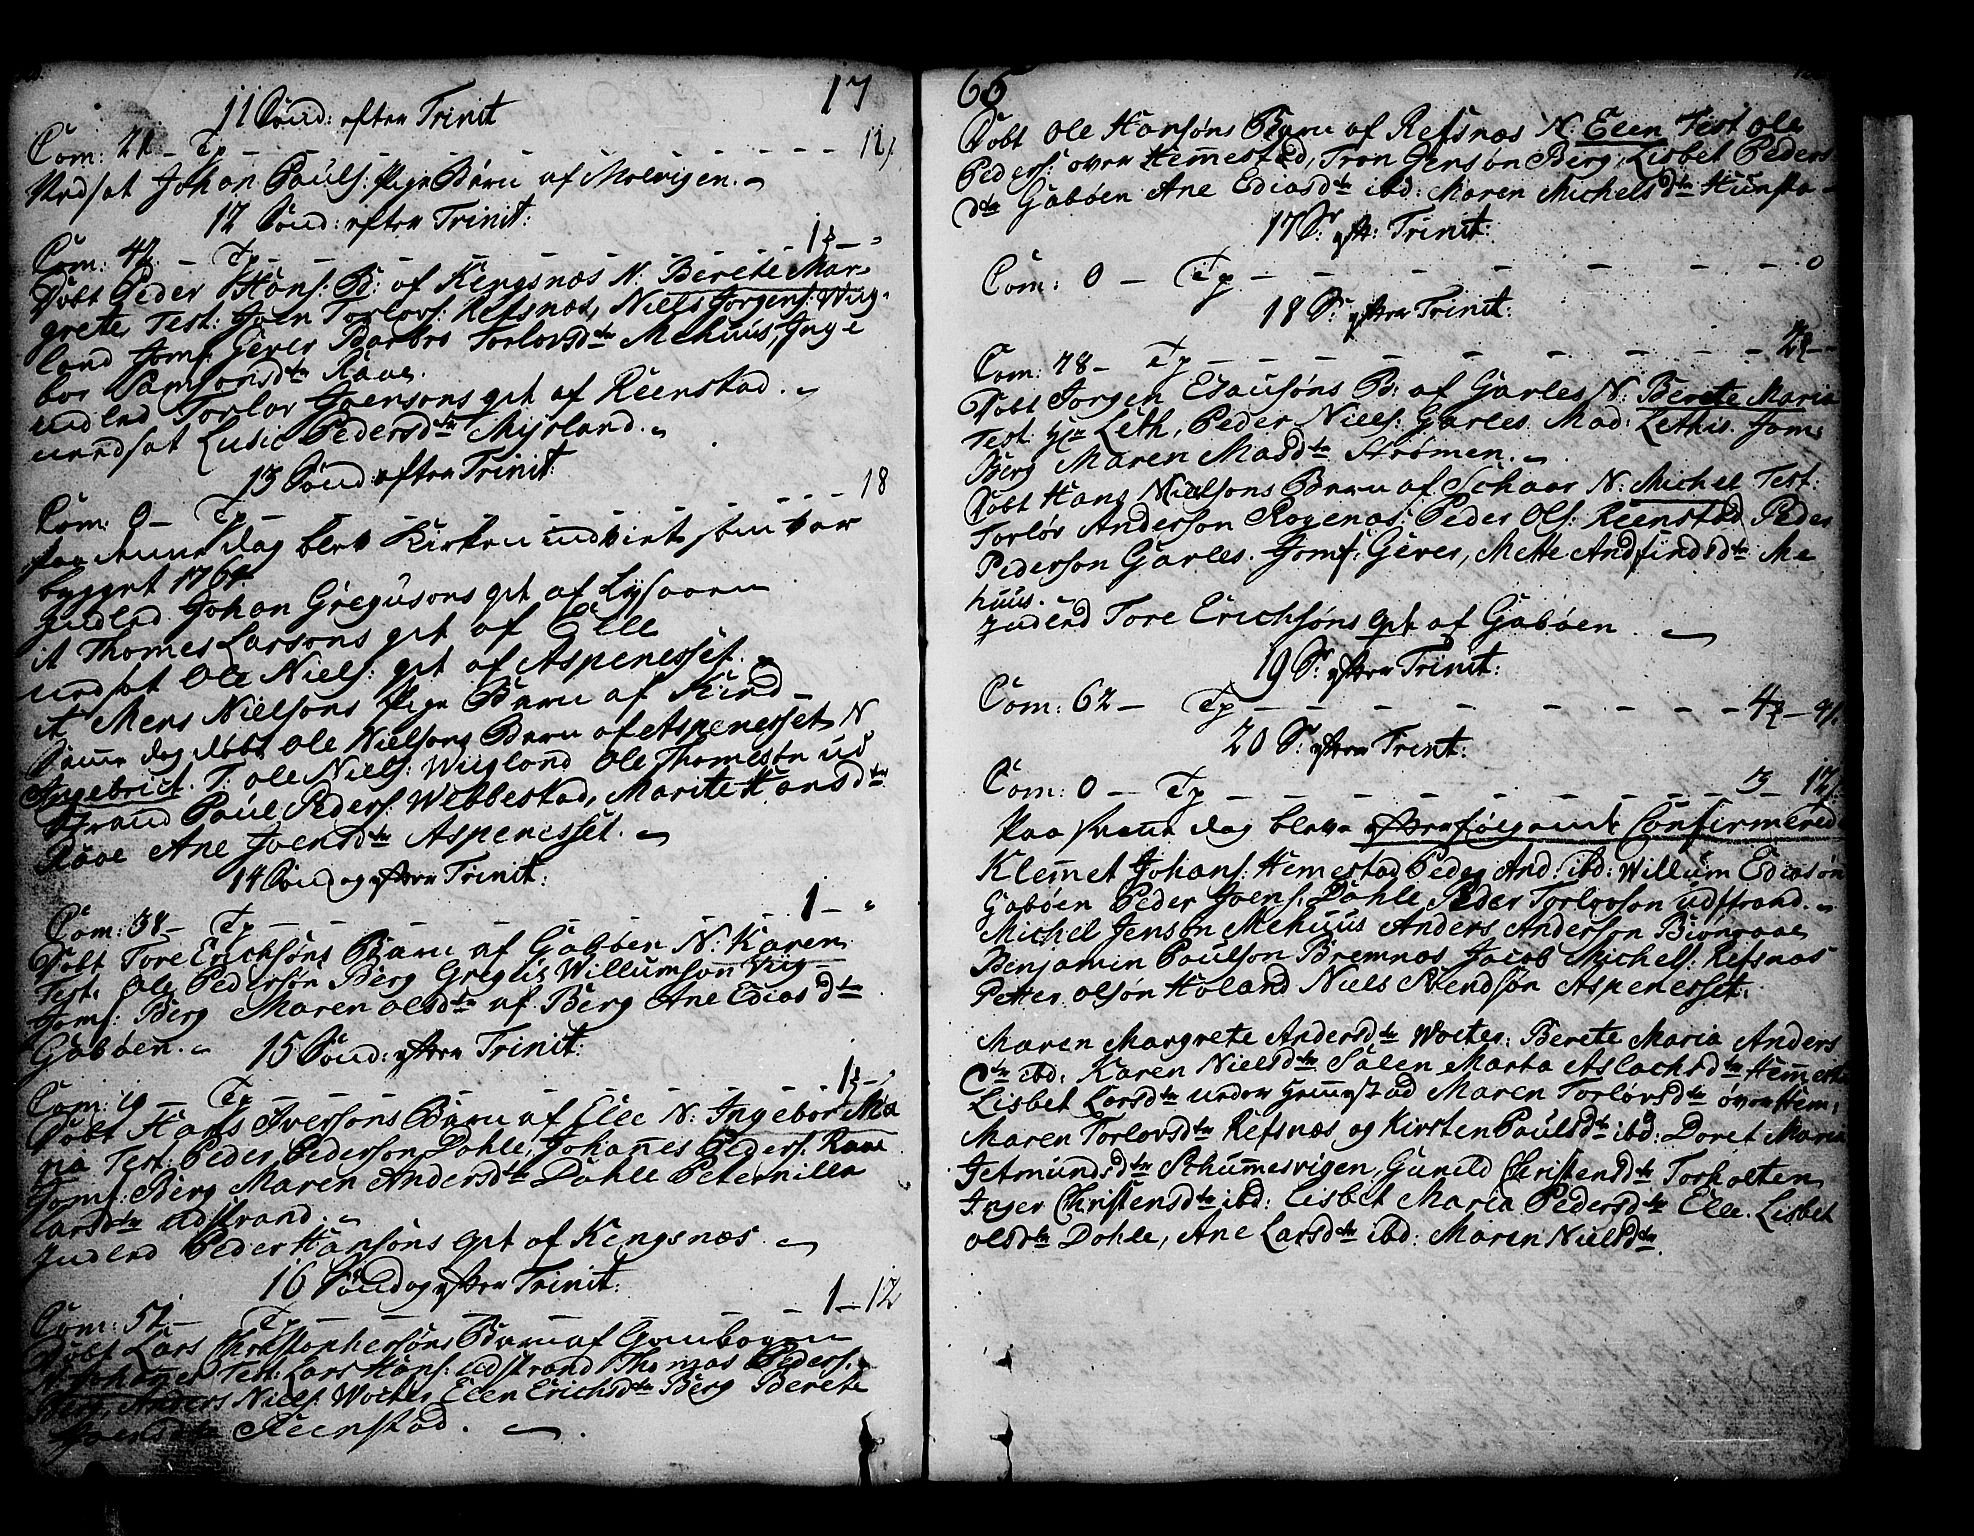 17
11 Sønd: efter Trinit
Com: 21 – Tp – – – – 12
Jordsat Johan Pouls: Pige Barn af Molvigen.
12 Sønd: efter Trinit:
Com: 42 – Tp – – – – 1
Døbt Peder Hans: B: af Kengsnæs N. Berete Mar-
grete Test: Joen Torlovs: Refsnæs, Niels Jørgens: Wiig-
land Jomf: Gever Barbro Torlovsdtr Mehuus, Inge
bor Samsonsdtr Raae.
indled Torlov Joensons qvt af Reenstad.
iordsat Lusie Pedersdtr Myrland.
13 Sønd: efter Trinit:
Com: 0 – Tp – – – – 18
Paa denne dag blev Kirken indviet som var
bygget 176
Indled Johan Gregusons qvt af Lysaaen
it Thomes Larsons qvt af Elle
iordsat Ole Niels: qvt af Aspenesset.
it Mens Nielsons Pige Barn af Kind
Samme dag døbt Ole Nielsons Barn af Aspenesset N
Ingebrict. T: Ole Niels: Wiigland Ole Thomesøn ud
Strand Poul Peders: Webbestad, Marite Hansdtr
Raae Ane Joensdtr Aspenesset.
14 Søndag efter Trinit:
Com: 38 – Tp – – – – 1 –
Døbt Tore Erichsøns Barn af Gabøen N: Karen
Test: Ole Pedersøn Berg Gregus Willumson Viig
Jomf: Berg Maren Olsdtr af Berg Ane Ediasdtr
Gabøen.
15 Sønd: efter Trinit:
Com: 19 – Tp – – – – 1
Døbt Hans Iversons Barn af Elle N: Ingebor Ma
ria Test: Peder Pederson Dahle, Johannes Peders: Raae
Jomf: Berg Maren Andersdtr Dahle Peternilla
Larsdtr Udstrand.
Indled Peder Hansøns qvt af Kengsnæs
16 Søndag efter Trinit:
Com: 52 – Tp – – – – 1 – 12
Døbt Lars Christophersøns Barn af
N Johanes Test: Lars Hans: Udstrand Thomas Peders:
Berg, Anders Niels: Wolter Elen Erichsdtr Berg Berete
Joensdtr Reenstad.
65
Døbt Ole Hansøns Barn af Refsnæs N: Elen Test Ole
Peders: over Hemestad, Tron Jenson Berg, Lisbet Peders
dtr Gabøen Ane Ediasdtr ibd: Maren Michelsdtr Hunsta
17 Sr. eft: Trinit:
Com: 0 – Tp – – – – 0
18 Sr. efter Trinit:
Com: 78 – Tp – – – – 2
Døbt Jorgen Edausøns B: af Garles N: Berete Maria
Test: Hr Leth, Peder Niels: Garles Mad: Lethis. Jom:
Berg Maren Masdtr Strømen.
Døbt Hans Nielsons Barn af Schaar N: Michel Test:
Torløv Anderson Rogenæs, Peder Ols: Reenstad Peder
Pederson Garles. Jomf: Gever, Mette Andfindsdtr Me
huus.
Indled Tore Erichsøns qvt af Gabøen
19 Sr. efter Trinit:
Com: 62 – Tp – – – – 4
20 Sr. efter Trinit:
Com: 0 – Tp – – – – 3 – 12
Paa denne dag bleve efterfølgende Confirmerede
Klemet Johans: Hemestad Peder And: ibd: Willum Ediasøn
Gabøen Peder Joens: Dahle Peder Torlovson Udstrand.
Michel Jenson Mehuus Anders Anderson Biønraae
Benjamin Poulson Bremnæs Jacob Michels: Refsnæs
Petter Olsøn Holand Niels Svendsøn Aspenesset.
Maren Margrete Andersdtr Wolter: Berete Maria Anders
dtr ibd: Karen Nielsdtr Salen Marta Aslachsdtr Hemesta
Lisbet Larsdtr under Hemestad Maren Torløvsdtr over Hem:
Maren Torlovsdtr Refsnæs og Kirsten Poulsdtr ibd: Doret Maria
Jetmundsdtr Sthumesvigen, Gunild Christensdtr Torholten
Inger Christensdtr ibd: Lisbet Maria Pedersdtr Elle. Lisbet
Olsdtr Dahle, Ane Larsdtr ibd: Maren Nielsdtr.